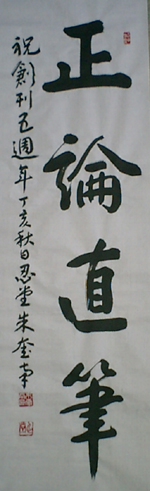 正論直筆
祝創刊五週年 丁亥秋日 忍堂 朱奎